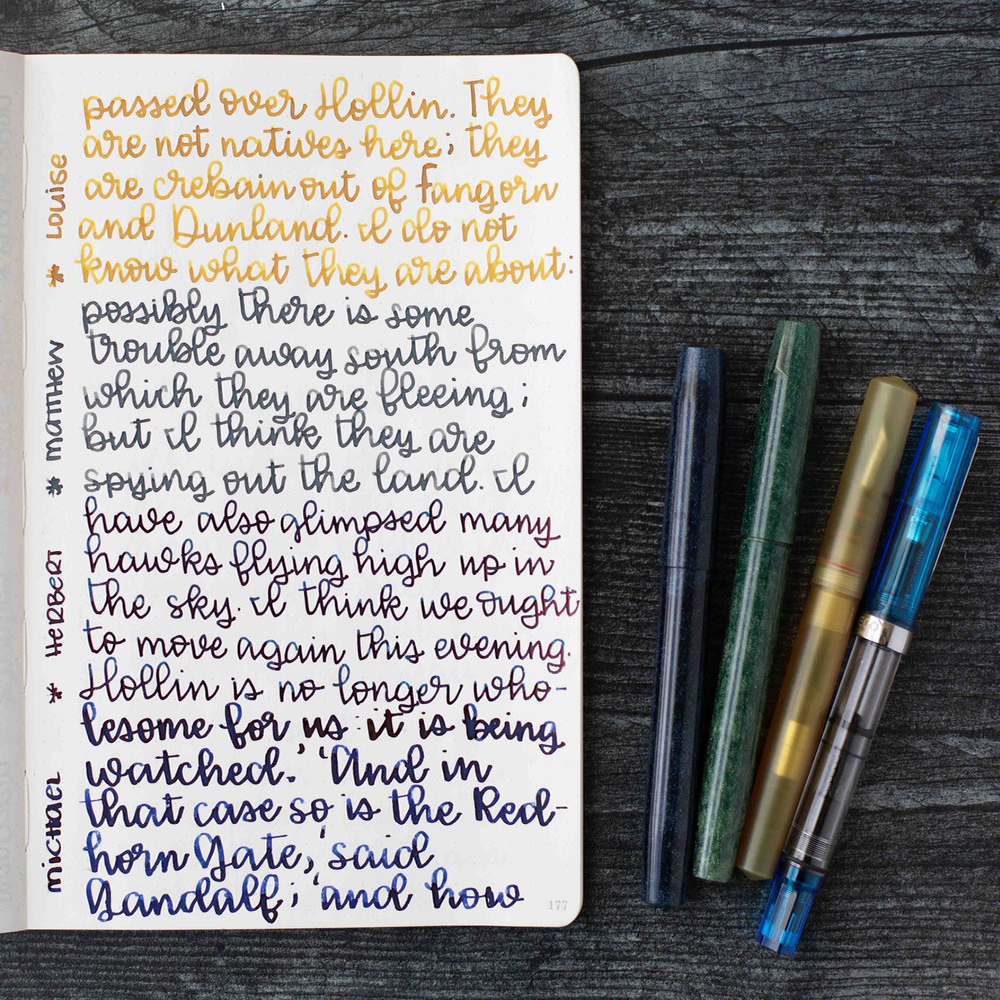 passed over Hollin. They
are not natives here; they
are crebain out of Fangorn
and Dunland. I do not
know what they are about:
possibly there is some
trouble away south from
which they are fleeing;
but I think they are
spying out the land. I
have also glimpsed many
hawks flying high up in
the sky. I think we ought
to move again this evening.
Hollin is no longer who-
lesome for us: it is being
watched.' 'And in
that case so is the Red-
horn Gate,' said
Gandalf; 'and how
* Louise
* Matthew
* Herbert
Michael
177